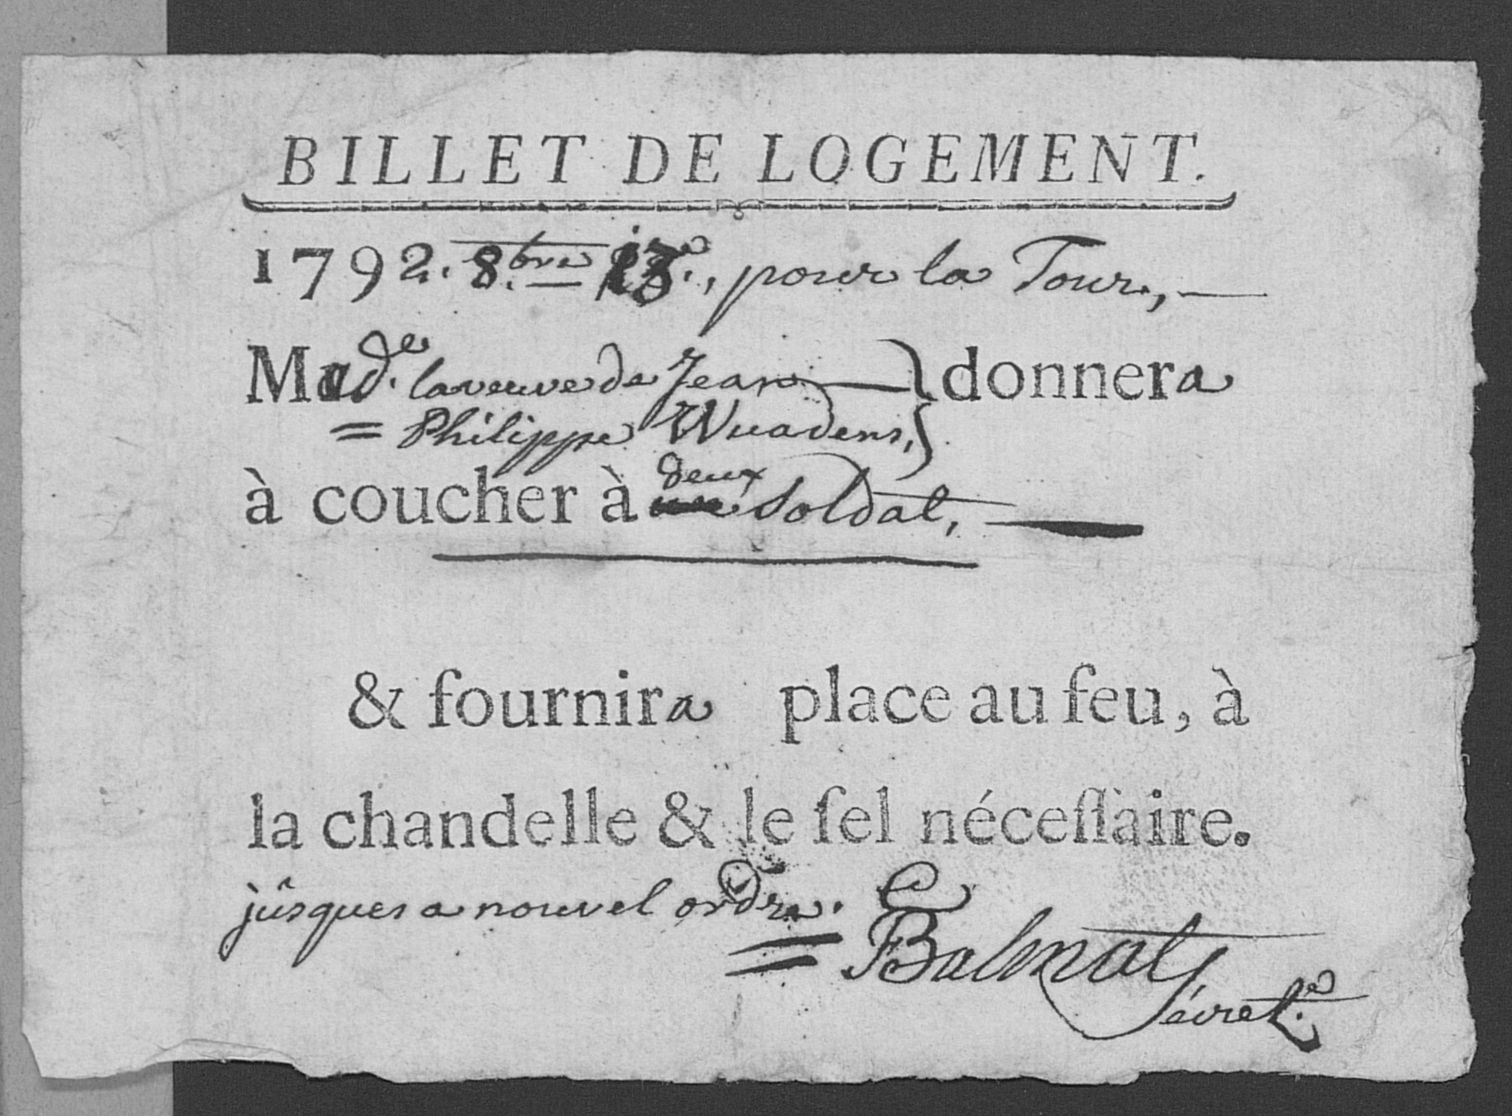 BILLET DE LOGEMENT.
1792. 8.bre 13.e, pour la Tour,
Mad.e la veuve de Jean } donnera
= Philippe Wuadens, }
à coucher à deux soldat,
& fournira place au feu, à
la chandelle & le ſel néceſſaire.
jusques a nouvel ordre.
= Balmat
Sécret.e